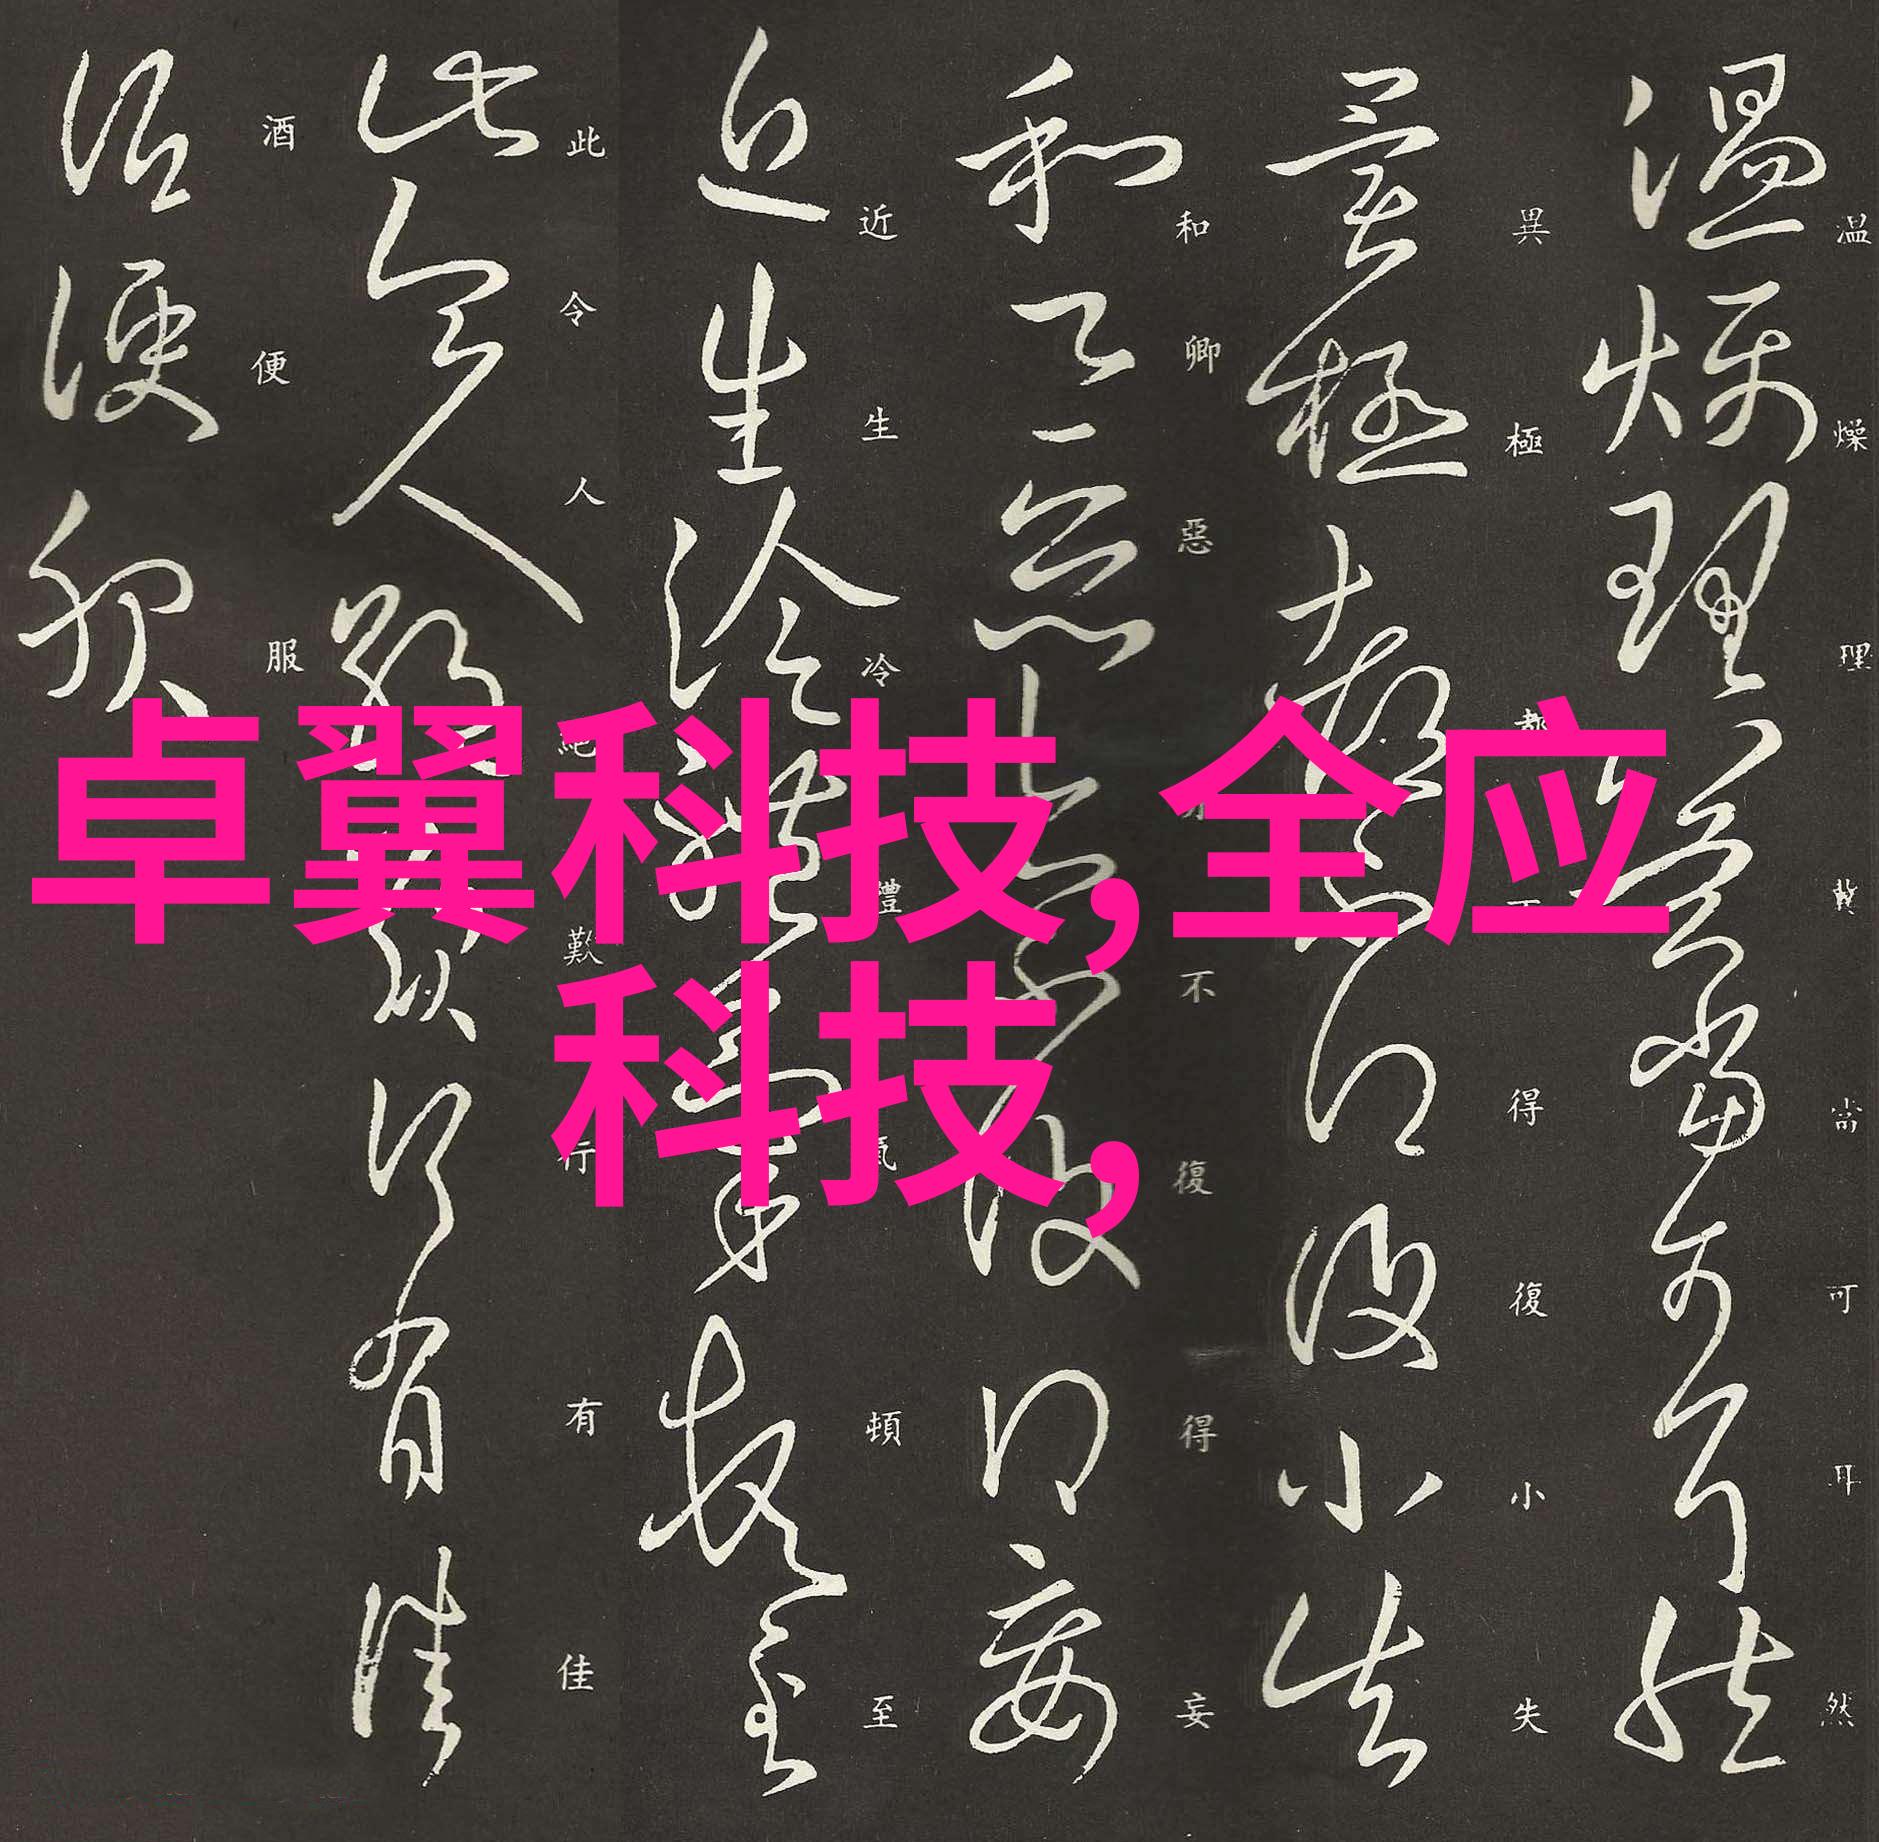 卓翼科技,全应
科技,
温燥理冀當可耳然
異極都不得復小失
和卿惡不復得妄
近生冷體氣頓至
此令人絕歎行有佳
酒便服